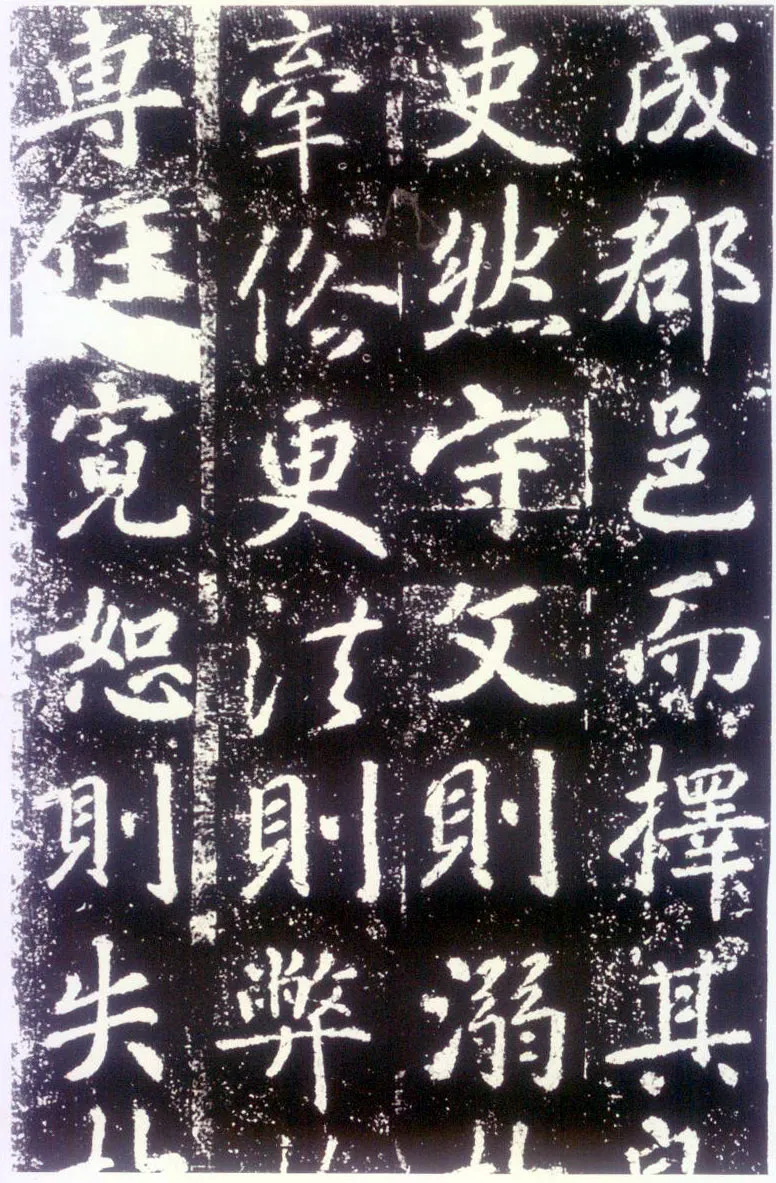 成郡邑而擇其良
吏然守文則溺於
牽俗更法則弊於
專任寬恕則失於